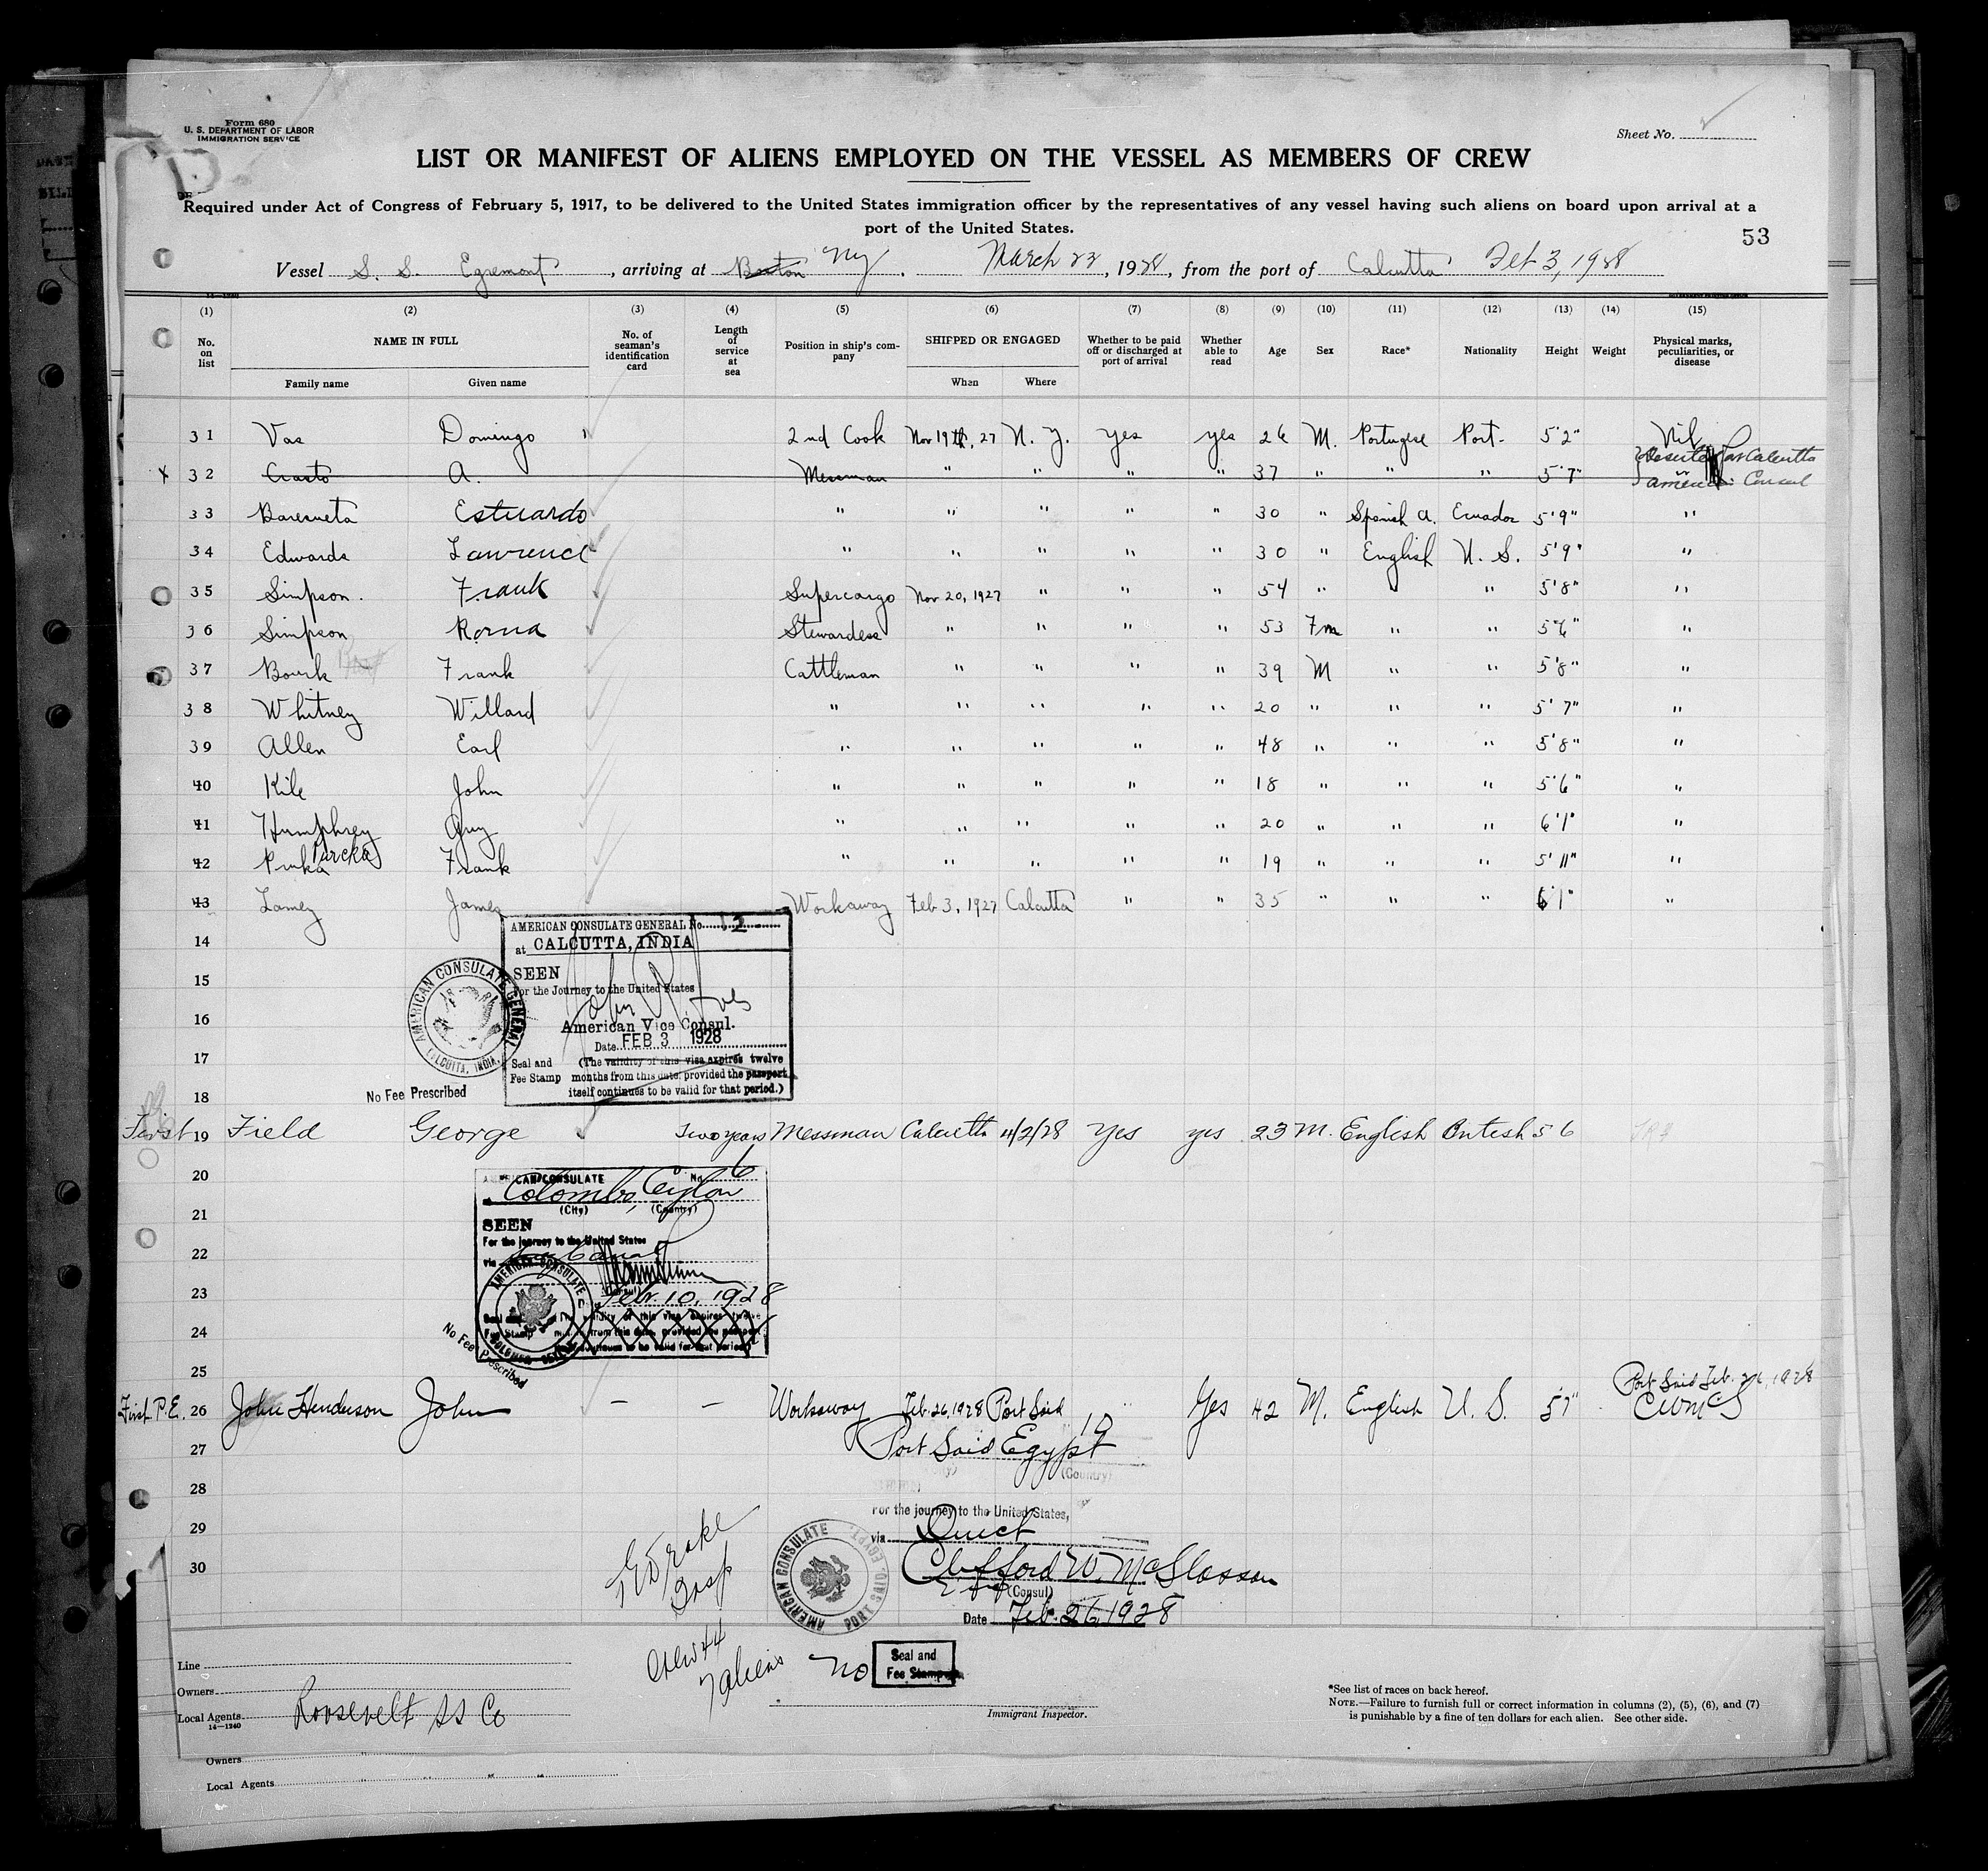 Form 680
U. S. DEPARTMENT OF LABOR
IMMIGRATION SERVICE
Sheet No. 2
LIST OR MANIFEST OF ALIENS EMPLOYED ON THE VESSEL AS MEMBERS OF CREW
Required under Act of Congress of February 5, 1917, to be delivered to the United States immigration officer by the representatives of any vessel having such aliens on board upon arrival at a
port of the United States.
53
Vessel S. S. Egremont, arriving at Boston NY. March 22, 1928, from the port of Calcutta Feb 3, 1928
(1) (2) (3) (4) (5) (6) (7) (8) (9) (10) (11) (12) (13) (14) (15)
No. on list NAME IN FULL No. of seaman's identification card Length of service at sea Position in ship's company SHIPPED OR ENGAGED Whether to be paid off or discharged at port of arrival Whether able to read Age Sex Race* Nationality Height Weight Physical marks, peculiarities, or disease
Family name Given name When Where
31 Vas Domingo 2nd Cook Nov 19th, 27 N. Y. Yes yes 26 M. Portugese Port. 5'2" Nil
x 32 Crasto A. Messman " " " " 37 " " " 5'7" Deserted at Calcutta
Consul
33 Estuardo " " " " " 30 " Spanish A. Ecuador 5'9" "
34 Edwards Lawrence " " " " " 30 " English U. S. 5'9" "
35 Simpson. Frank Supercargo Nov 20, 1927 " " " 54 " " " 5'8" "
36 Simpson Rorna Stewardess " " " " 53 Fm " " 5'6" "
37 Bourk Frank Cattleman " " " " 39 M " " 5'8" "
38 Whitney Willard " " " " " 20 " " " 5'7" "
39 Allen Earl " " " " " 48 " " " 5'8" "
40 Kile John " " " " " 18 " " " 5'6" "
41 Humphrey Guy " " " " " 20 " " " 6'1" "
42 Purcka Frank " " " " " 19 " " " 5'11" "
43 Lamey James Workaway Feb 3, 1927 Calcutta " " 35 " " " 6'1" "
14
AMERICAN CONSULATE GENERAL No. 12
at CALCUTTA, INDIA
15
SEEN
For the Journey to the United States
16
American Vice Consul.
Date FEB 3 1928
17
Seal and Fee Stamp (The validity of this visa expires twelve
months from this date, provided the passport
itself continues to be valid for that period.)
AMERICAN CONSULATE GENERAL CALCUTTA, INDIA.
No Fee Prescribed
18
First 19 Field George Two years Messman Calcutta 4/2/28 Yes yes 23 M. English British 5 6
20
AMERICAN CONSULATE No. 6
Colombo, Ceylon
(City) (Country)
21
SEEN
For the journey to the United States
22
via
(Consul)
23
Febr. 10, 1928
24
AMERICAN CONSULATE COLOMBO CEYLON
No Fee Prescribed
25
Port Said Feb. 26, 1928
First P.E. 26 John Henderson John — — Workaway Feb. 26, 1928 Port Said " Yes 42 M. English U. S. 5'7" CWMcS
10
27 Port Said Egypt
(Country)
28
For the journey to the United States,
29 via Direct
30 Clifford W. McGlasson
(Consul)
Date Feb. 26 1928
AMERICAN CONSULATE PORT SAID, EGYPT.
Crew 44
7 aliens
No Seal and
Fee Stamp
Line
Owners
Local Agents Roosevelt SS Co
14—1240
Immigrant Inspector.
*See list of races on back hereof.
NOTE.—Failure to furnish full or correct information in columns (2), (5), (6), and (7)
is punishable by a fine of ten dollars for each alien. See other side.
Owners
Local Agents